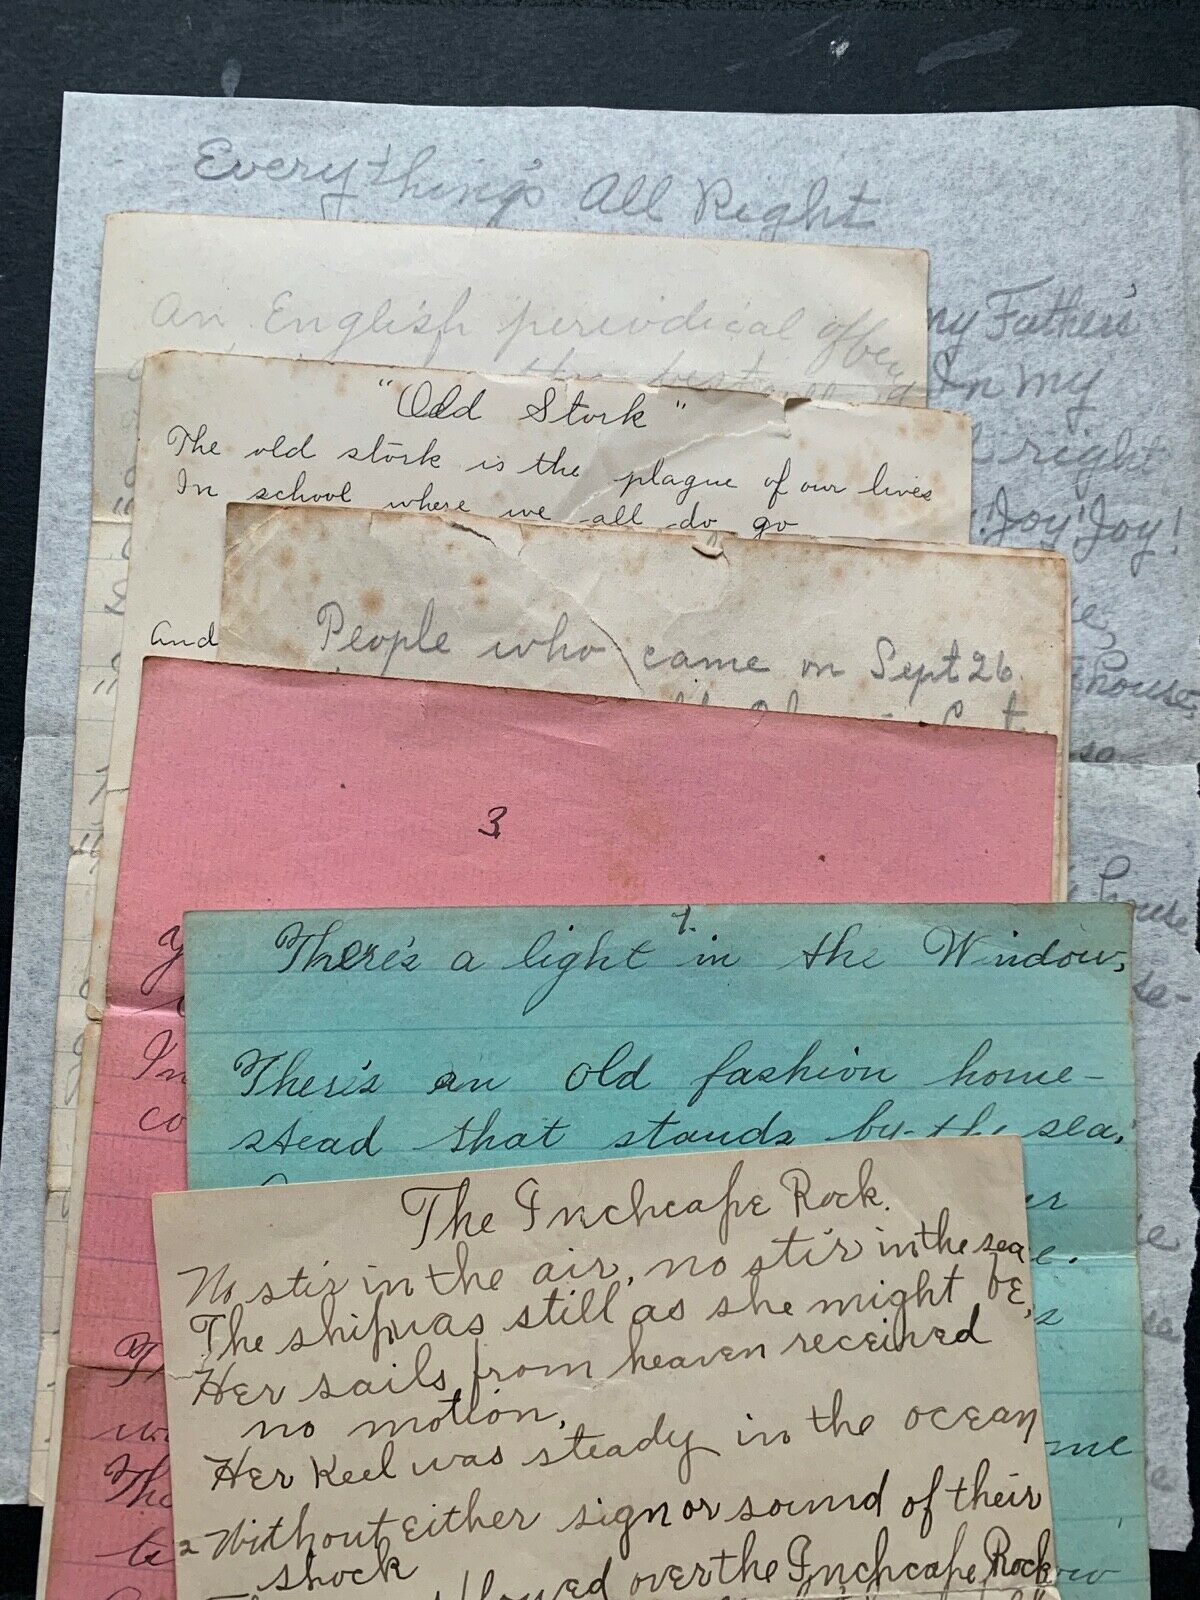 Everything's All Right
my Father's
In my
right
Joy! Joy!
house,
so
house
An English periodical
the best
"Odd Stork"
The old stork is the plague of our lives
In school where we all do go
And
People who came on Sept 26.
3
In
co
1.
There's a light in the Window,
There's an old fashion home-
stead that stands by the sea,
er
e.
's
me
ow
The Inchcape Rock.
No stir in the air, no stir in the sea
The ship was still as she might be,
Her sails from heaven received
no motion,
Her Keel was steady in the ocean
2 Without either sign or sound of their
shock
flowed over the Inchcape Rock